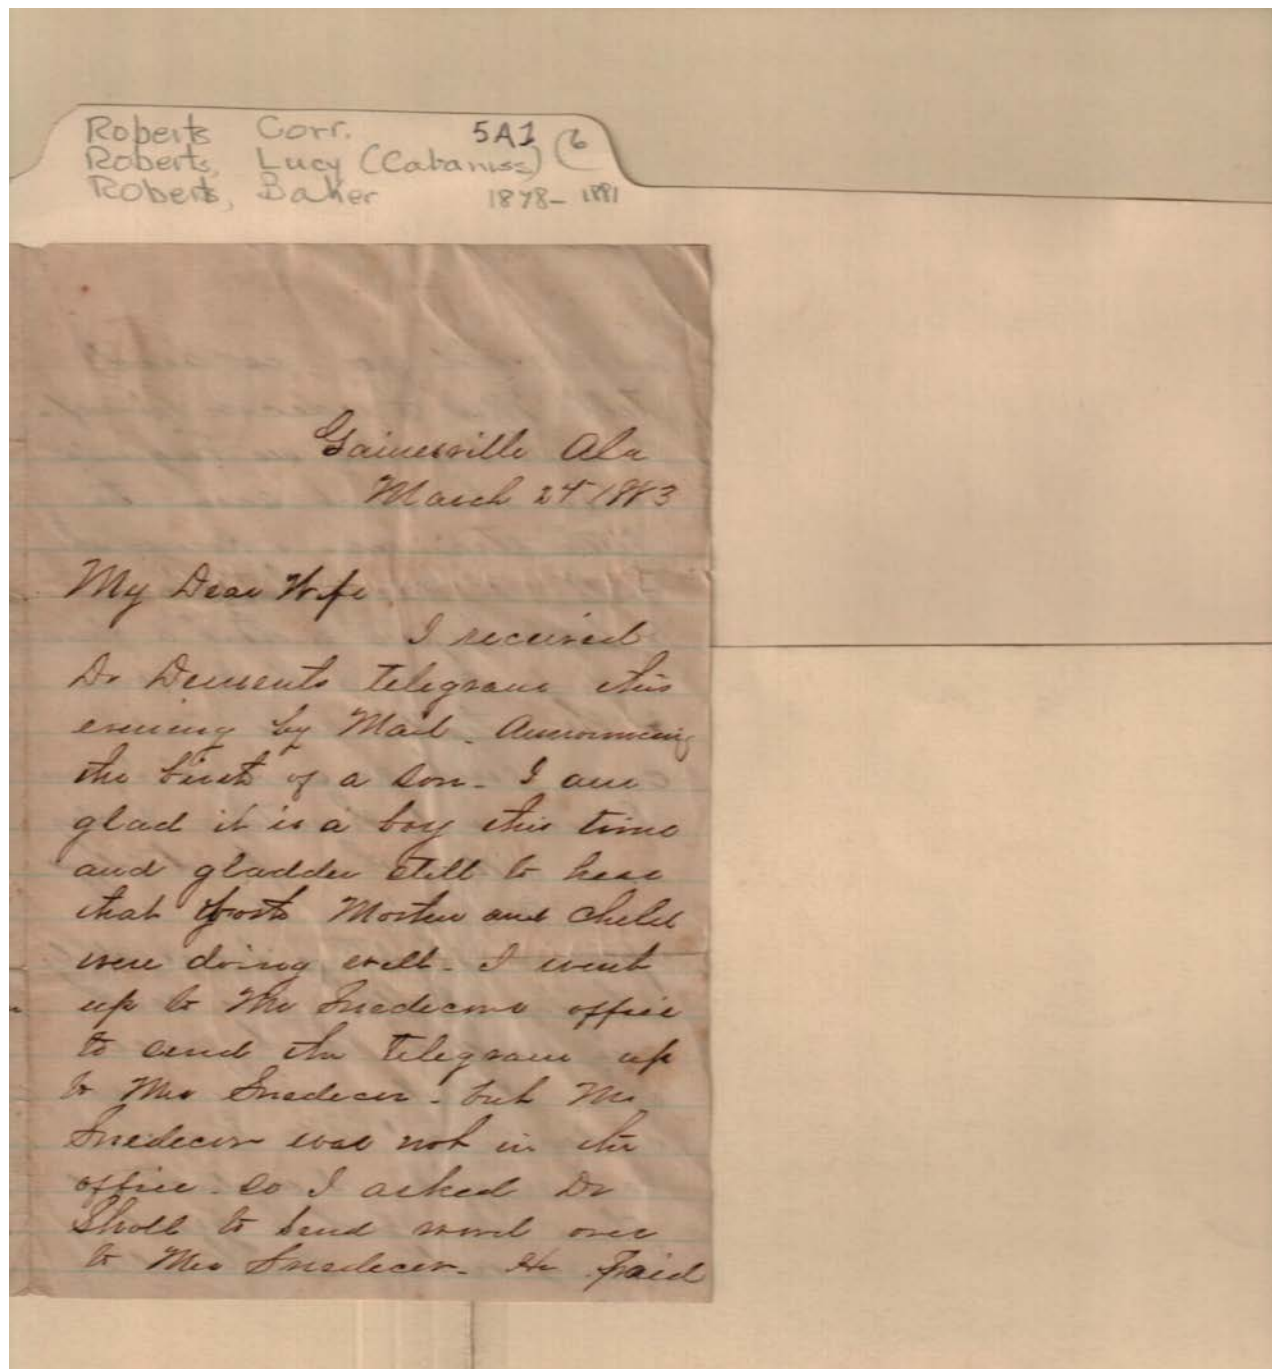 Roberts Corr. 5A1 (6
Roberts, Lucy (Cabaniss)
Roberts, Baker 1878- 1881
Gainesville Ala
March 24 1883
My Dear Wife
I received
Dr Dements telegram this
evening by Mail. Announcing
the birth of a son - I am
glad it is a boy this time
and gladder still to hear
that both Mother and child
were doing well - I went
up to Mr Snedecors office
to send the telegram up
to Mrs Snedecor - but Mr
Snedecor was not in the
office - so I asked Dr
Sholl to send word over
to Mrs Snedecor - He said